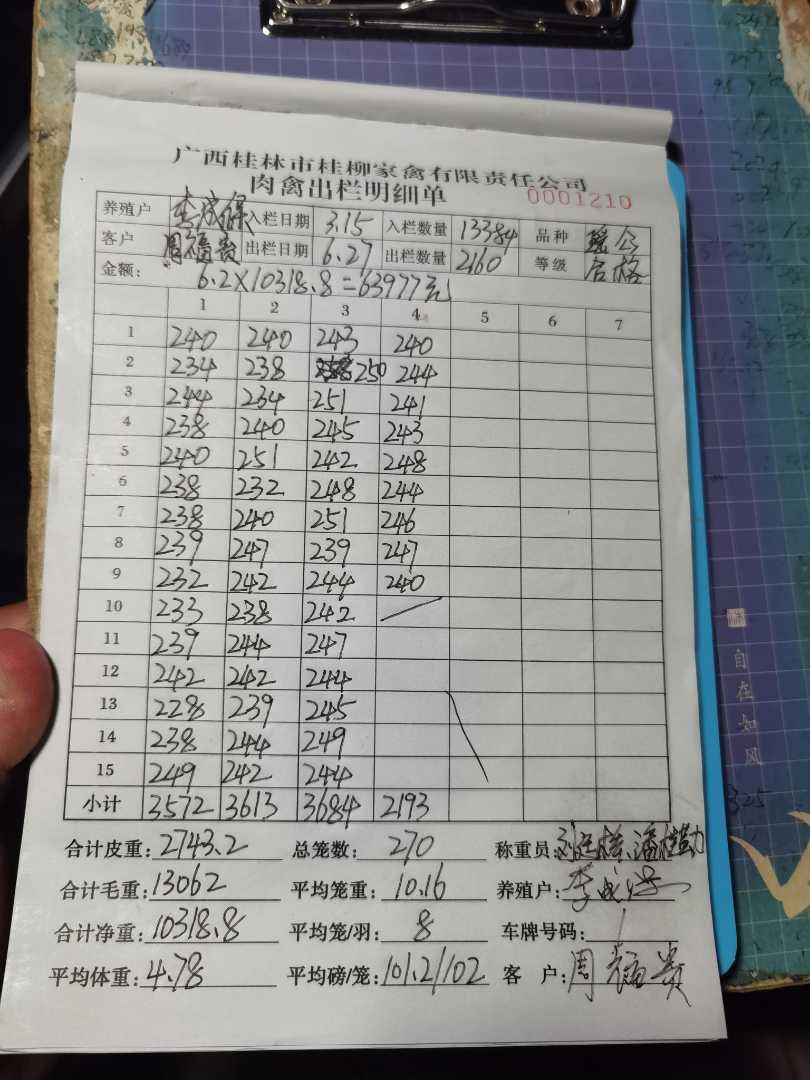 广西桂林市桂柳家禽有限责任公司
肉禽出栏明细单 0001210
养殖户 李成保 入栏日期 3.15 入栏数量 13384 品种 瑶公
客户 周福贵 出栏日期 6.27 出栏数量 2160 等级 合格
金额: 6.2×10318.8=63977元
1 2 3 4 5 6 7
1 240 240 243 240
2 234 238 250 244
3 244 234 251 241
4 238 240 245 243
5 240 251 242 248
6 238 232 248 244
7 238 240 251 246
8 239 247 239 247
9 232 242 244 240
10 233 238 242
11 239 244 247
12 242 242 244
13 228 239 245
14 238 244 249
15 249 242 244
小计 3572 3613 3684 2193
合计皮重: 2743.2 总笼数: 270 称重员:
合计毛重: 13062 平均笼重: 10.16 养殖户: 李成保
合计净重: 10318.8 平均笼/羽: 8 车牌号码: /
平均体重: 4.78 平均磅/笼: 101.2/102 客 户: 周福贵
自在如风